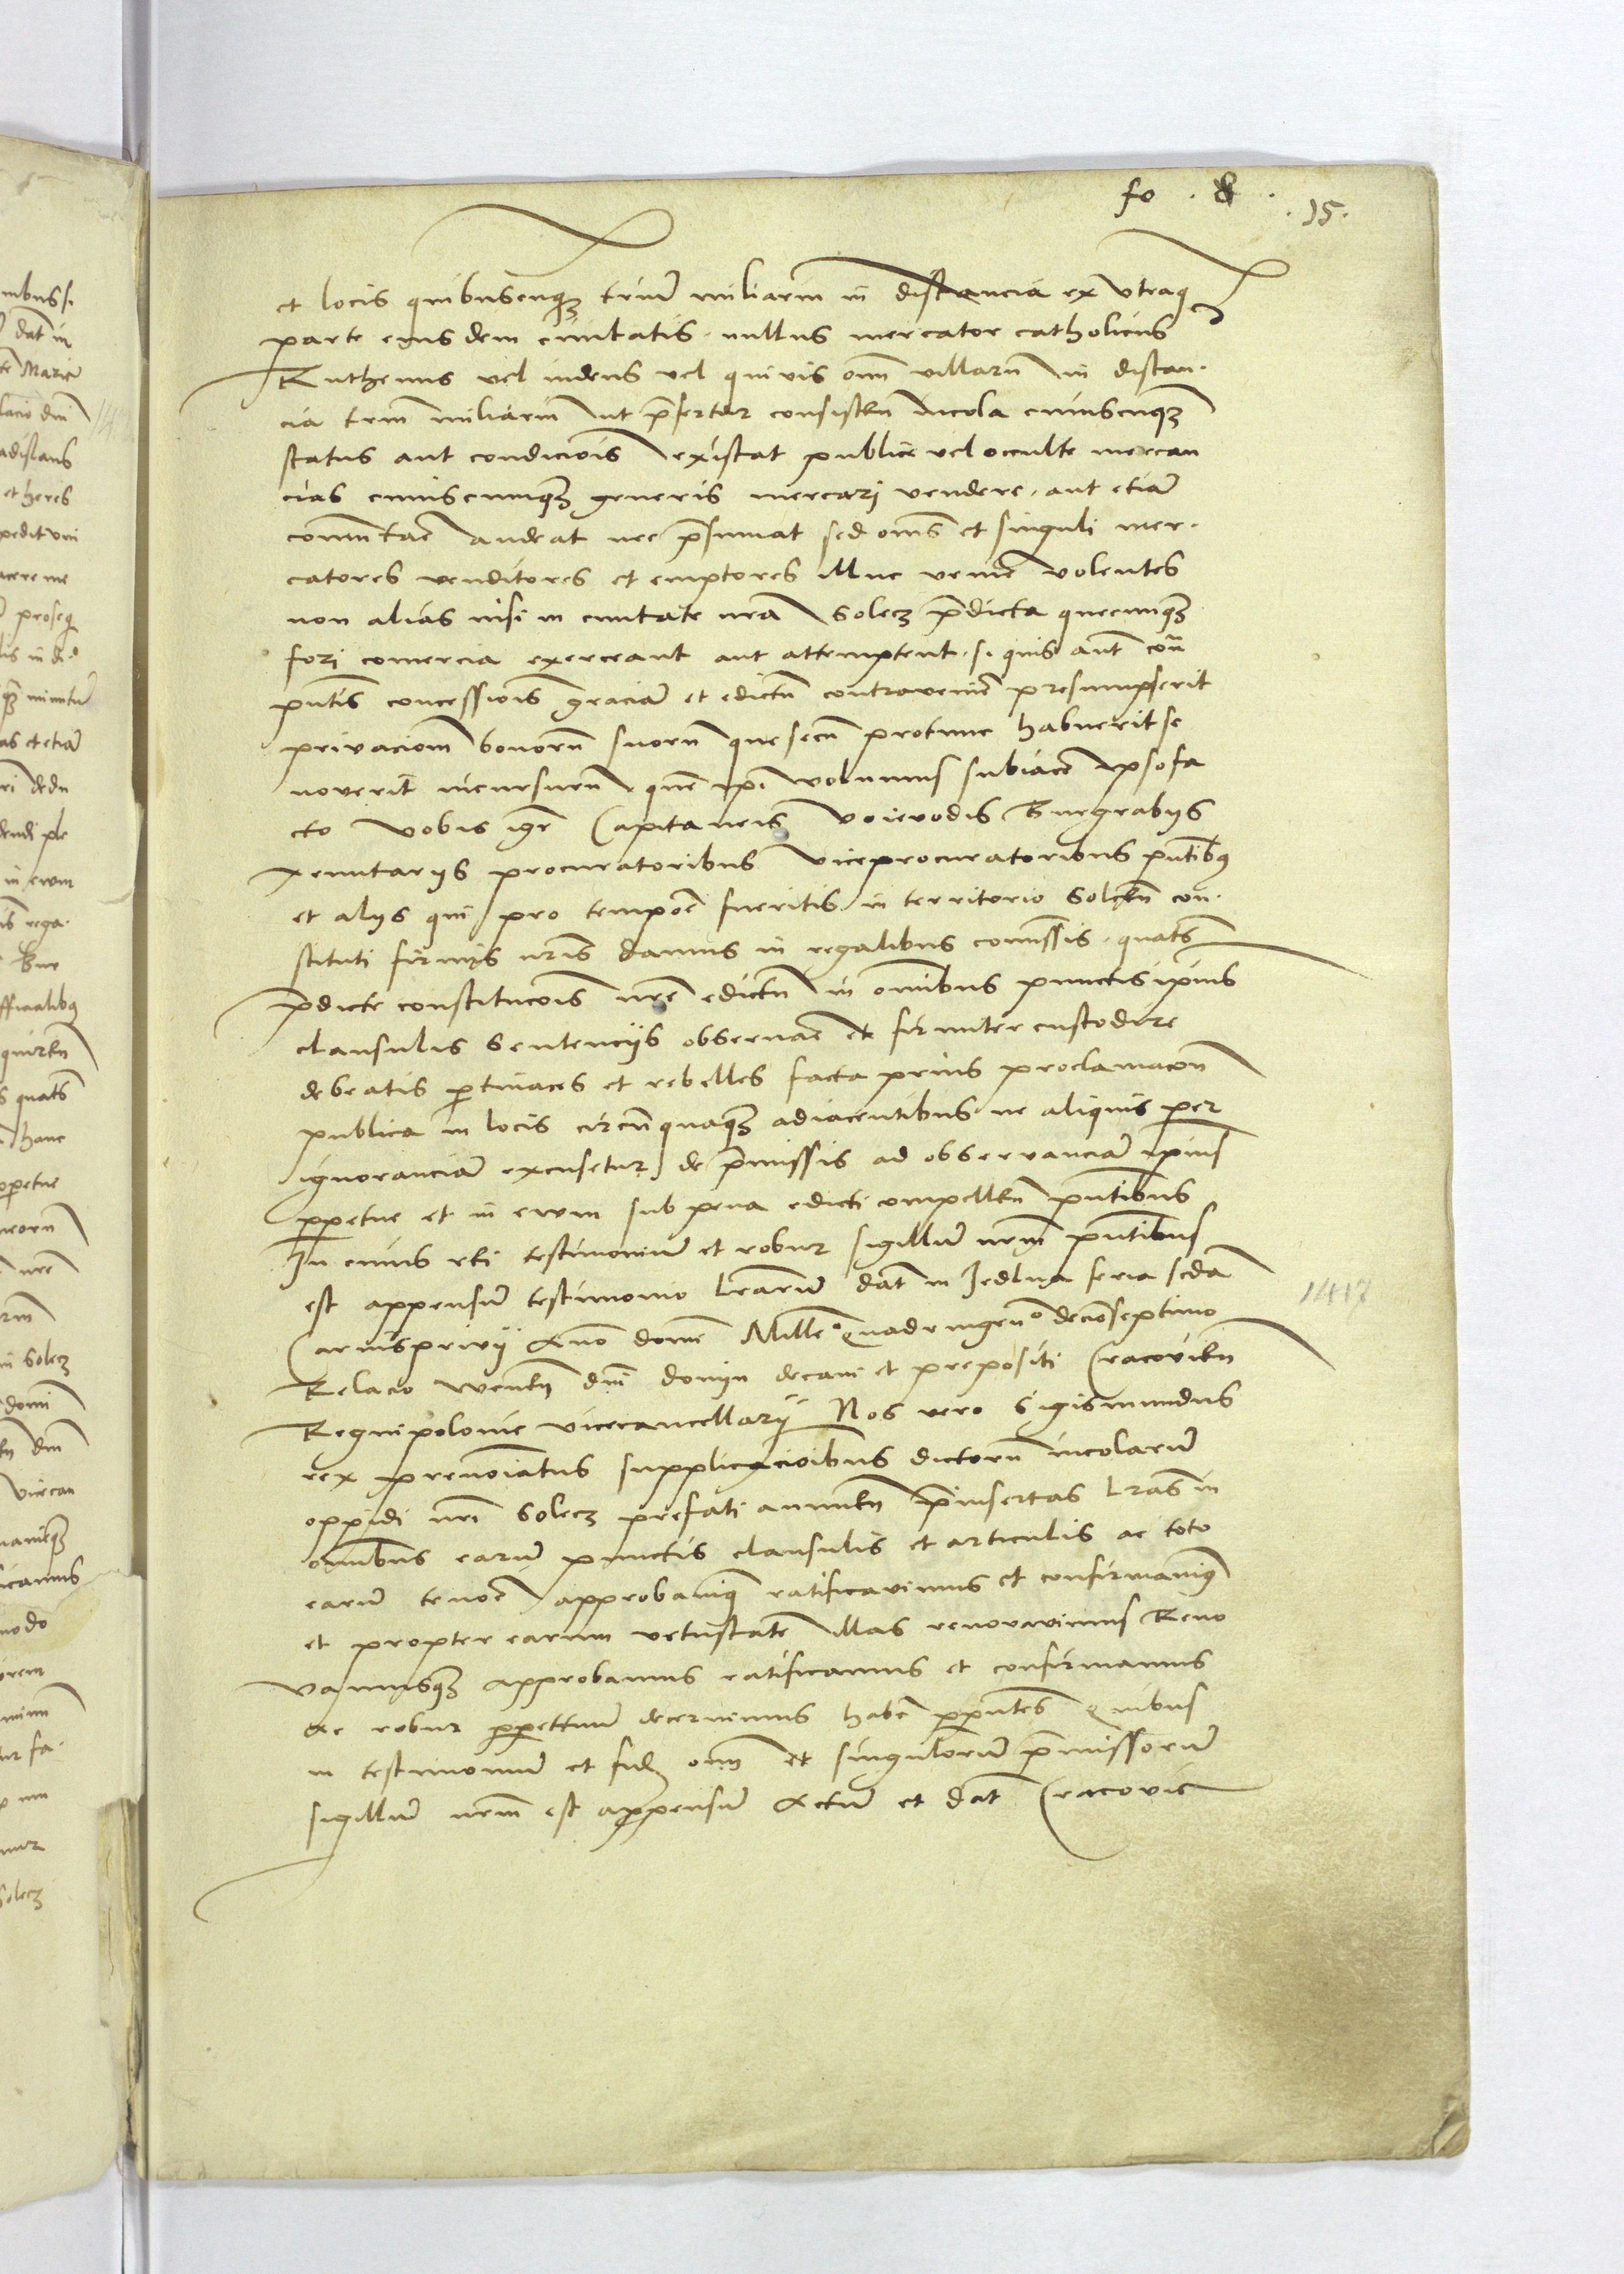 fo . 8 .
. 15 .
et locis quibuscuq3 triu miliarm in distancia ex utraq
parte eius dem ciuitatis . nullus mercator catholicus
Ruthenus vel iudeus vel quiuis om villaru in distan.
cia trm miliarm ut pfertur consisten incola cuiuscuq3
status aut condicois existat publice vel occulte mercan
cias cuiuscumq3 generis mercari vendere . aut etia
comutac audeat nec psumat sed oms et singuli mer.
catores venditores et emptores illuc venie volentes
non alias nisi in ciuitate nra Solecz predicta quecumq3
fori comercia exerceant aut attemptent . si quis aut con
pntis concessiois gracia et edictu contravenie presumpserit
privaciom bonoru suoru que secu protunc habuerit se
noverit incursuru . que ipi volumus subiace ipsofa
cto Vobis igr Capitaneis Voievodis Burgrabiis
Tenutariis procuratoribus viceprocuratoribus pntibus
et aliis qui pro tempoe fueritis in territorio Solcen con.
stituti firmis nris damus in regalibus comissis . quats
pdicte constitucois nre edictu in omibus punctis ipius
clausulis sentenciis obseruae et firmiter custodire
debeatis ptinaces et rebelles facta prius proclamacon
publica in locis circuquaq3 adiacentibus ne aliquis per
ignorancia excusetur de pmissis ad observancia ipius
ppetue et in evum sub pena edicti compellen pntibus
In cuius rei testimoniu et robur sigillu nrm pntibus
est appensu testimonio lraru dat in Jedlna feria scda
1417
Carnisprivii Ano domi Millo Quadringeno decioseptimo
Relacio Veneln dni Donin decani et prepositi Cracovien
Regni polonie vicecancellarii Nos vero Sigismundus
rex prenoiatus supplicacioibus dictoru incolaru
oppidi nri Solecz prefati annuen pinsertas lras in
omibus earu punctis clausulis et articulis ac toto
earu tenoe approbauimus ratificavimus et confirmauimus
et propter earum vetustate illas renovavimus Reno
vamusq3 approbamus ratificamus et confirmamus
ac robur ppetuu decernimus habe ppntes Quibus
in testimoniu et fide om et singuloru pmissoru
sigillu nrm est appensu Actu et dat Cracovie